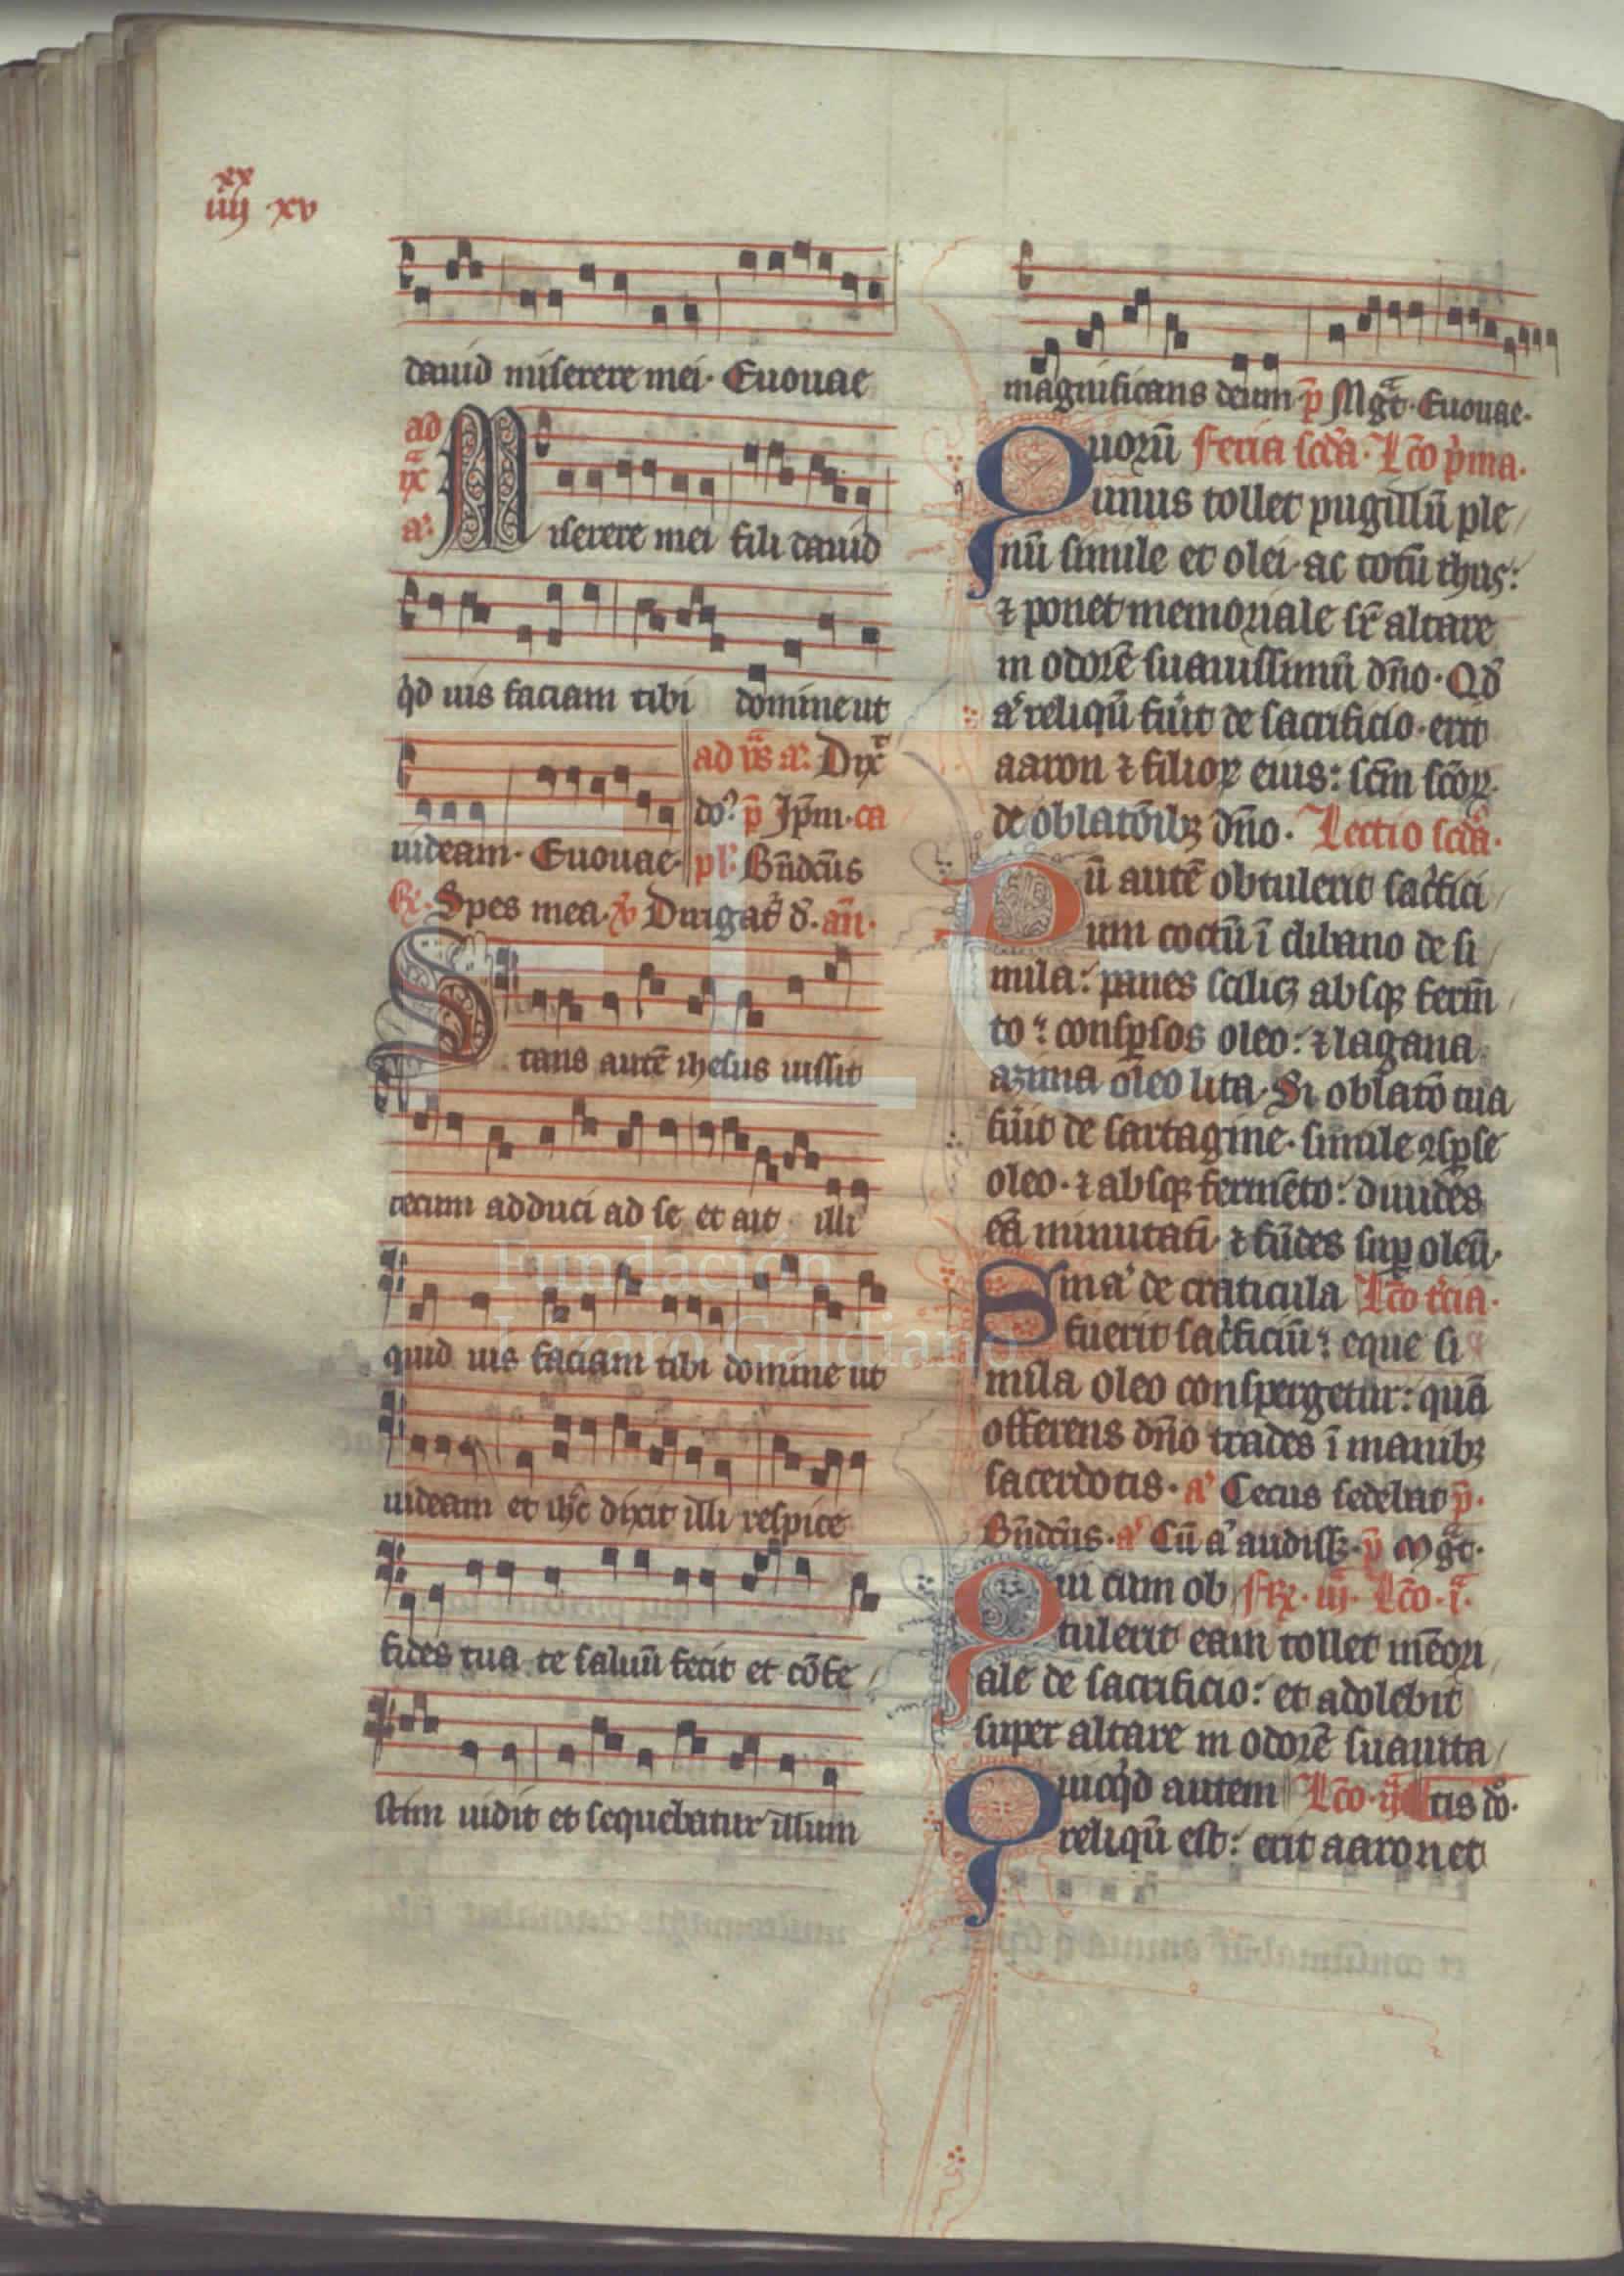 xx
iiij xv
dauid miserere mei. Euouae
ad
ix̄
a᷒.
Miserere mei fili dauid
qd̾ uis faciam tibi domine ut
ad vs̄ a᷒. Dix̄
do᷒ p̄ Ip̄m. ca
uideam. Euouae. pl᷒. Bn̄dc̄us
R̷. Spes mea. v̾ Dirigat᷒ d̄. an̄.
Stans autē ihesus iussit
cecum adduci ad se et ait illi
quid uis faciam tibi domine ut
uideam et ihc̄ dixit illi respice
fides tua te saluū fecit et cōfe
stim uidit et sequebatur illum
magnificans deum p̄ Mgt̄. Euouae.
Quorū feria scd̄a. Lc̄o p̾ma.
unus tollet pugillū ple
nū simile et olei. ac totū thus:
⁊ ponet memoriale sr̄ altare
in odorē suauissimū dn̄o. Qd̄
a᷒ reliqū fuīt de sacrificio. erit
aaron ⁊ filioꝝ eius: scm̄ scōꝝ
de oblatōibꝫ dn̄o. Lectio scd̄a.
Cū autē obtulerit sac̾fici
um coctū ī clibano de si
mila: panes scilicꝫ absqꝫ ferm̄
to: consꝑsos oleo: ⁊ lagana
azima oleo lita. Si oblatō tua
fuīt de sartagine. simile ꝯsꝑse
oleo. ⁊ absqꝫ fermēto: diuides
eā minutati. ⁊ fūdes suꝑ oleū.
Sin a᷒ de craticula Lc̄o t̾cia.
fuerit sac̾ficiū: eque si
mila oleo conspergetur: quā
offerens dn̄o trades ī manibꝫ
sacerdotis. a᷒ Cecus sedebat p̄.
Bn̄dc̄us. a᷒ Cū a᷒ audissꝫ. p̄ Mgt̄.
Qui cum ob fꝝ. iij. Lc̄o. i.
tulerit eam tollet mēori
ale de sacrificio: et adolebit
super altare in odorē suauita
Quicqd̾ autem Lc̄o. ij tis do.
reliqū est: erit aaron et
Fundación
Lázaro Galdiano